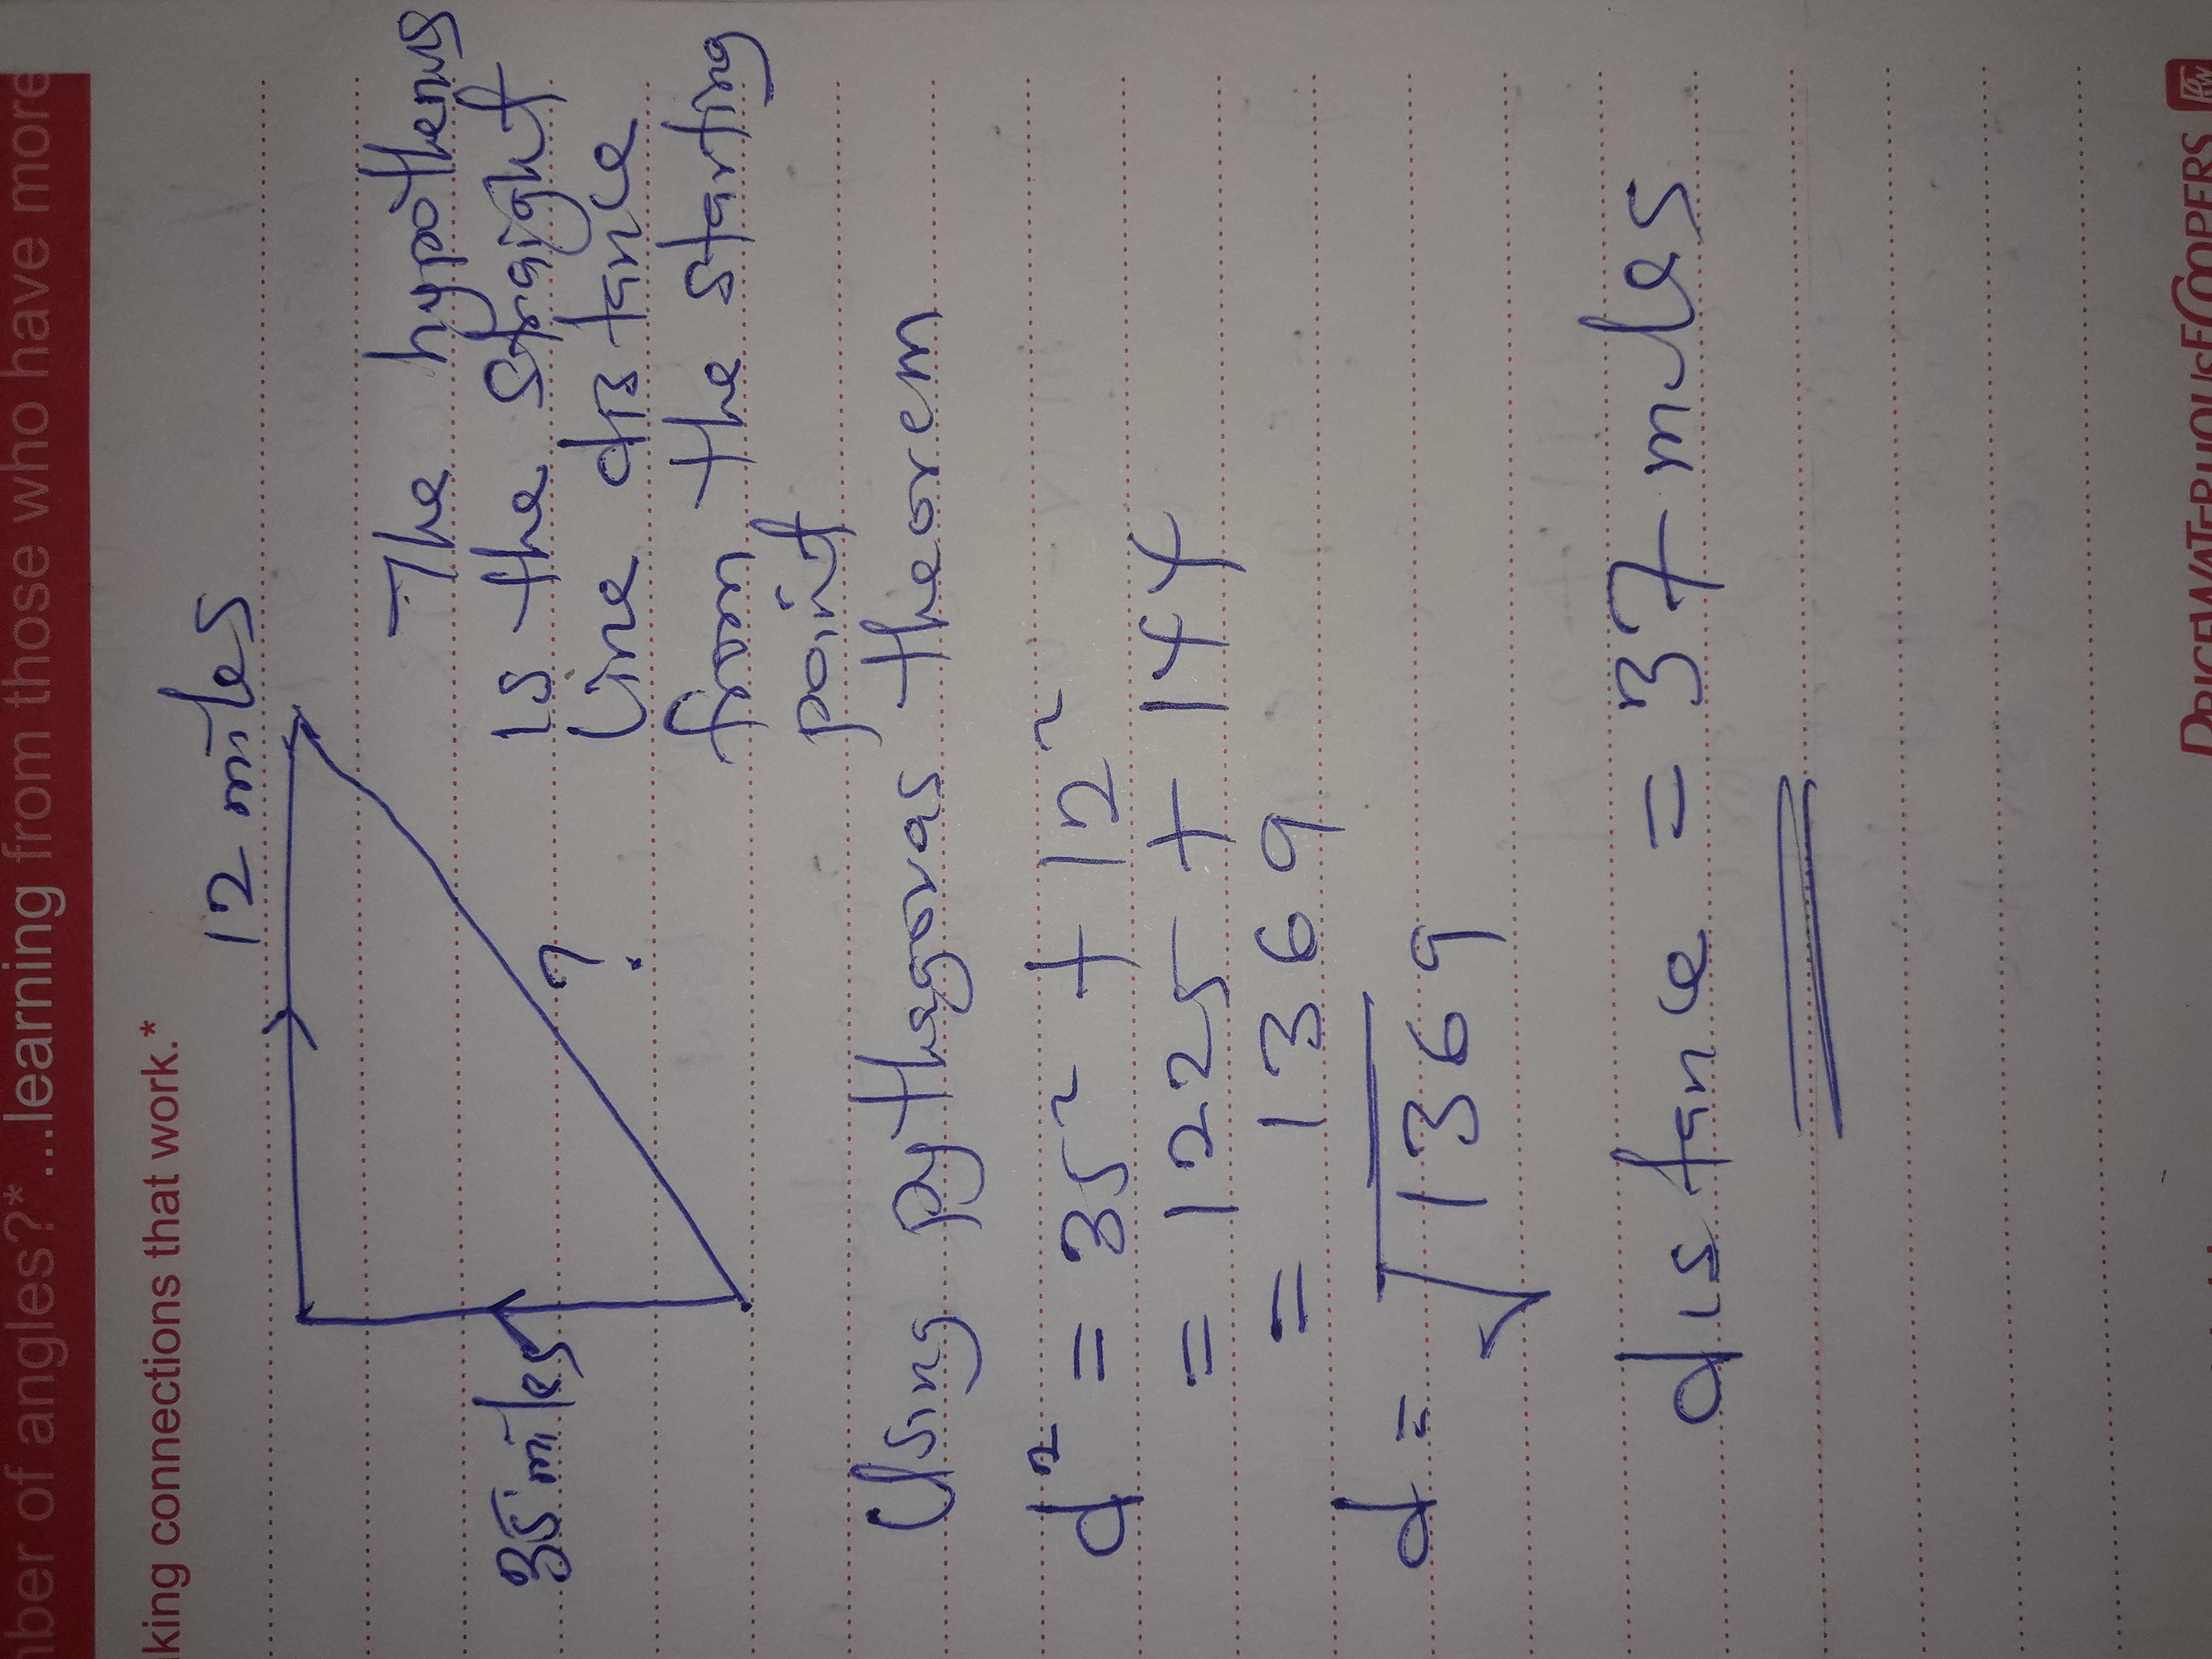 mber of angles?*...learning from those who have more
king connections that work.*
12 miles
35 miles
?
The hypothenus
is the straight
line distance
from the starting
point
Using pythagoras theorem
d² = 35² + 12²
= 1225 + 144
= 1369
d = √1369
distance = 37 miles
PRICEWATERHOUSECOOPERS